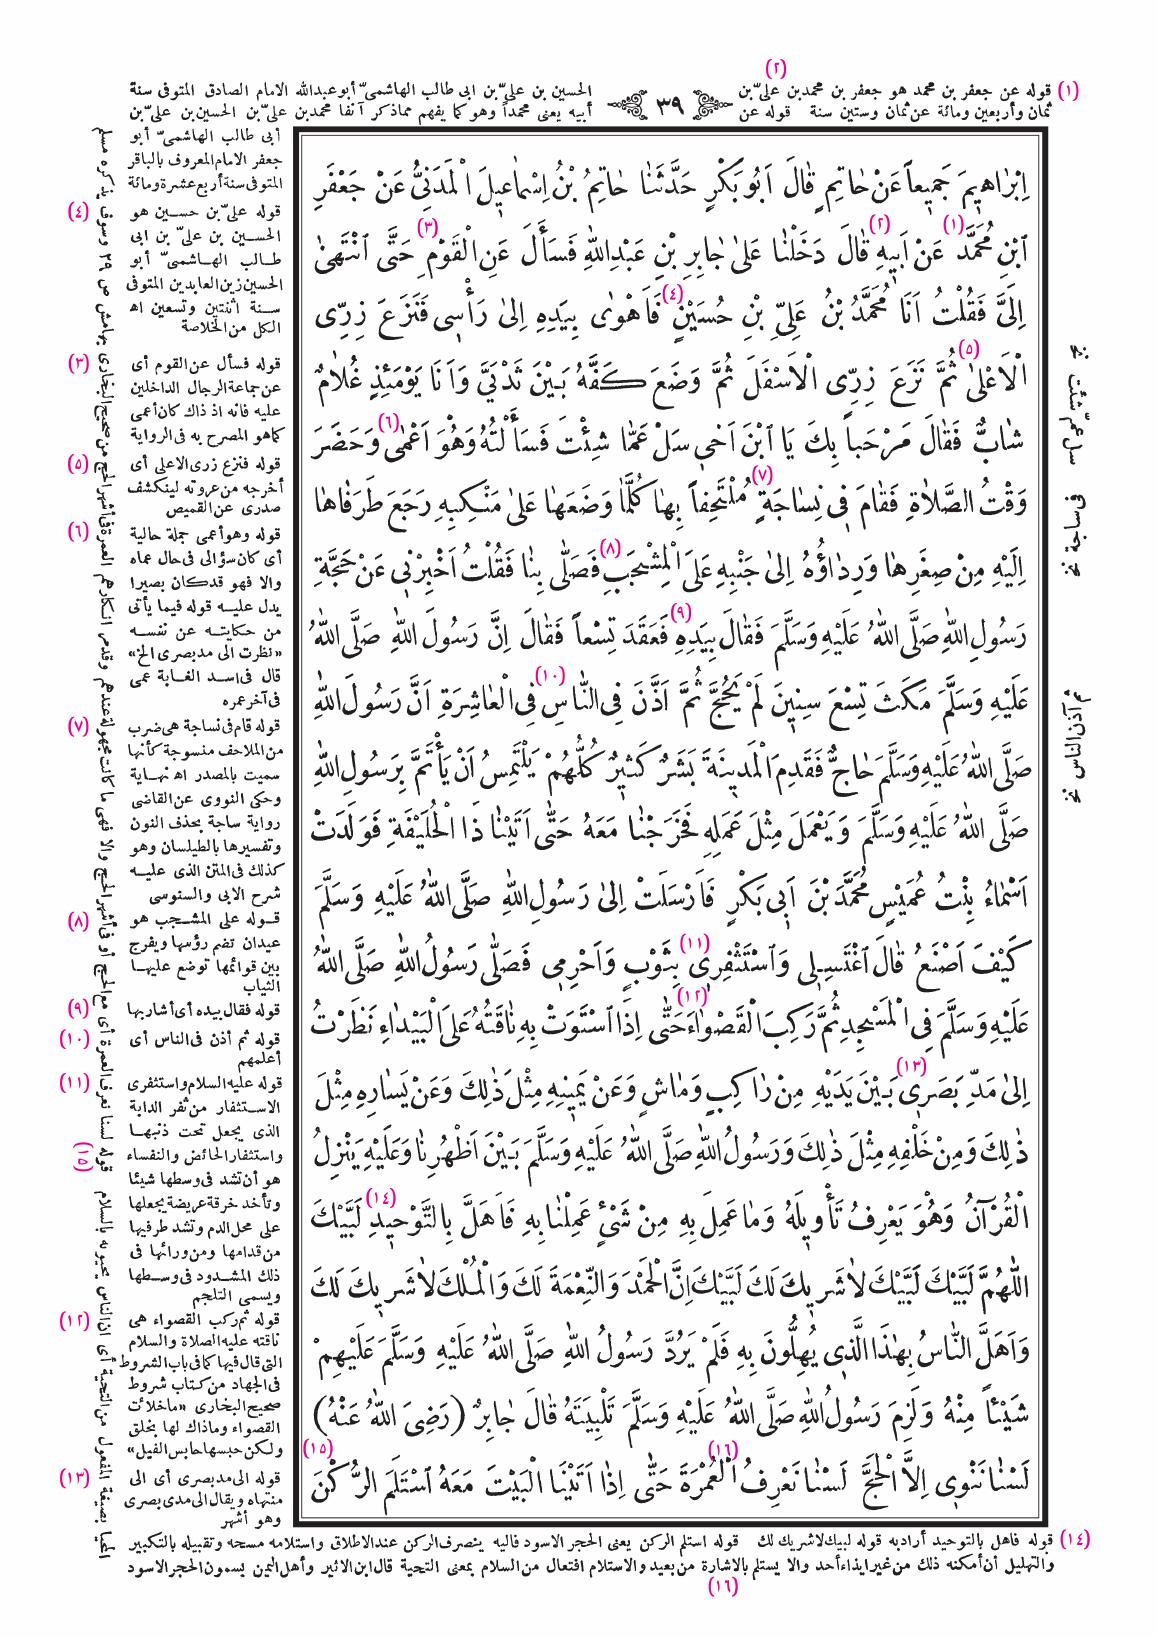 (٢)
(١) قوله عن جعفر بن محمد هو جعفر بن محمد بن علي بن
الحسين بن علي بن ابى طالب الهاشمي أبو عبدالله الامام الصادق المتوفى سنة
٣٩
ثمان وأربعين ومائة عن ثمان وستين سنة قوله عن
أبيه يعنى محمداً وهو كما يفهم مماذكر آنفا محمد بن علي بن الحسين بن علي بن
أبى طالب الهاشمي أبو
جعفر الامام المعروف بالباقر
المتوفى سنة أربع عشرة ومائة
(٤) قوله علي بن حسين هو
الحسين بن علي بن ابى
طالب الهاشمي أبو
الحسين زين العابدين المتوفى
سنة اثنتين وتسعين اه
الكل من الخلاصة
(٣) قوله فسأل عن القوم أى
عن جماعة الرجال الداخلين
عليه فانه اذ ذاك كان أعمى
كما هو المصرح به فى الرواية
(٥) قوله فنزع زرى الاعلى أى
أخرجه من عروته لينكشف
صدرى عن القميص
(٦) قوله وهو أعمى جملة حالية
أى كان سؤالى فى حال عماه
والا فهو قدكان بصيرا
يدل عليه قوله فيما يأتى
من حكايته عن نفسه
«نظرت الى مد بصرى الخ»
قال فى اسد الغابة عمى
فى آخر عمره
(٧) قوله قام فى نساجة هى ضرب
من الملاحف منسوجة كأنها
سميت بالمصدر اه نهاية
وحكى النووى عن القاضى
رواية ساجة بحذف النون
وتفسيرها بالطيلسان وهو
كذلك فى المتن الذى عليه
شرح الابى والسنوسى
(٨) قوله على المشجب هو
عيدان تضم رؤسها ويفرج
بين قوائمها توضع عليها
الثياب
(٩) قوله فقال بيده أى أشاربها
(١٠) قوله ثم أذن فى الناس أى
أعلمهم
(١١) قوله عليه السلام واستثفرى
الاستثفار من ثفر الدابة
الذى يجعل تحت ذنبها
واستثفار الحائض والنفساء
هو أن تشد فى وسطها شيئا
وتأخذ خرقة عريضة يجعلها
على محل الدم وتشد طرفيها
من قدامها ومن ورائها فى
ذلك المشدود فى وسطها
ويسمى التلجم
(١٢) قوله ثم ركب القصواء هى
ناقته عليه الصلاة والسلام
التى قال فيها كما فى باب الشروط
فى الجهاد من كتاب شروط
صحيح البخارى «ماخلات
القصواء وماذاك لها بخلق
ولكن حبسها حابس الفيل»
(١٣) قوله الى مد بصرى أى الى
منتهاه ويقال الى مدى بصرى
وهو أشهر
اِبْرَاهِيمَ جَمِيعاً عَنْ حَاتِمٍ قَالَ اَبُو بَكْرٍ حَدَّثَنَا حَاتِمُ بْنُ اِسْمَاعِيلَ الْمَدَنِيُّ عَنْ جَعْفَرِ
ابْنِ مُحَمَّدٍ (١) عَنْ اَبِيهِ (٢) قَالَ دَخَلْنَا عَلىٰ جَابِرِ بْنِ عَبْدِاللّٰهِ فَسَأَلَ عَنِ الْقَوْمِ (٣) حَتَّى انْتَهىٰ
اِلَيَّ فَقُلْتُ اَنَا مُحَمَّدُ بْنُ عَلِيِّ بْنِ حُسَيْنٍ (٤) فَاَهْوىٰ بِيَدِهِ اِلىٰ رَأْسِى فَنَزَعَ زِرِّى
الْاَعْلىٰ (٥) ثُمَّ نَزَعَ زِرِّى الْاَسْفَلَ ثُمَّ وَضَعَ كَفَّهُ بَيْنَ ثَدْيَيَّ وَاَنَا يَوْمَئِذٍ غُلَامٌ
شَابٌّ فَقَالَ مَرْحَباً بِكَ يَا ابْنَ اَخِى سَلْ عَمَّا شِئْتَ فَسَأَلْتُهُ وَهُوَ اَعْمٰى (٦) وَحَضَرَ
وَقْتُ الصَّلَاةِ فَقَامَ فِى نِسَاجَةٍ (٧) مُلْتَحِفاً بِهَا كُلَّمَا وَضَعَهَا عَلىٰ مَنْكِبِهِ رَجَعَ طَرَفَاهَا
اِلَيْهِ مِنْ صِغَرِهَا وَرِدَاؤُهُ اِلىٰ جَنْبِهِ عَلَى الْمِشْجَبِ (٨) فَصَلّٰى بِنَا فَقُلْتُ اَخْبِرْنِى عَنْ حَجَّةِ
رَسُولِ اللّٰهِ صَلَّى اللّٰهُ عَلَيْهِ وَسَلَّمَ فَقَالَ بِيَدِهِ (٩) فَعَقَدَ تِسْعاً فَقَالَ اِنَّ رَسُولَ اللّٰهِ صَلَّى اللّٰهُ
عَلَيْهِ وَسَلَّمَ مَكَثَ تِسْعَ سِنِينَ لَمْ يَحُجَّ ثُمَّ اَذَّنَ فِى النَّاسِ (١٠) فِى الْعَاشِرَةِ اَنَّ رَسُولَ اللّٰهِ
صَلَّى اللّٰهُ عَلَيْهِ وَسَلَّمَ حَاجٌّ فَقَدِمَ الْمَدِينَةَ بَشَرٌ كَثِيرٌ كُلُّهُمْ يَلْتَمِسُ اَنْ يَأْتَمَّ بِرَسُولِ اللّٰهِ
صَلَّى اللّٰهُ عَلَيْهِ وَسَلَّمَ وَيَعْمَلَ مِثْلَ عَمَلِهِ فَخَرَجْنَا مَعَهُ حَتّٰى اَتَيْنَا ذَا الْحُلَيْفَةِ فَوَلَدَتْ
اَسْمَاءُ بِنْتُ عُمَيْسٍ مُحَمَّدَ بْنَ اَبِى بَكْرٍ فَاَرْسَلَتْ اِلىٰ رَسُولِ اللّٰهِ صَلَّى اللّٰهُ عَلَيْهِ وَسَلَّمَ
كَيْفَ اَصْنَعُ قَالَ اغْتَسِلِى وَاسْتَثْفِرِى (١١) بِثَوْبٍ وَاَحْرِمِى فَصَلّٰى رَسُولُ اللّٰهِ صَلَّى اللّٰهُ
عَلَيْهِ وَسَلَّمَ فِى الْمَسْجِدِ ثُمَّ رَكِبَ الْقَصْوَاءَ (١٢) حَتّٰى اِذَا اسْتَوَتْ بِهِ نَاقَتُهُ عَلَى الْبَيْدَاءِ نَظَرْتُ
اِلىٰ مَدِّ بَصَرِى (١٣) بَيْنَ يَدَيْهِ مِنْ رَاكِبٍ وَمَاشٍ وَعَنْ يَمِينِهِ مِثْلَ ذٰلِكَ وَعَنْ يَسَارِهِ مِثْلَ
ذٰلِكَ وَمِنْ خَلْفِهِ مِثْلَ ذٰلِكَ وَرَسُولُ اللّٰهِ صَلَّى اللّٰهُ عَلَيْهِ وَسَلَّمَ بَيْنَ اَظْهُرِنَا وَعَلَيْهِ يَنْزِلُ
الْقُرْآنُ وَهُوَ يَعْرِفُ تَأْوِيلَهُ وَمَا عَمِلَ بِهِ مِنْ شَيْءٍ عَمِلْنَا بِهِ فَاَهَلَّ بِالتَّوْحِيدِ (١٤) لَبَّيْكَ
اللّٰهُمَّ لَبَّيْكَ لَبَّيْكَ لَا شَرِيكَ لَكَ لَبَّيْكَ اِنَّ الْحَمْدَ وَالنِّعْمَةَ لَكَ وَالْمُلْكَ لَا شَرِيكَ لَكَ
وَاَهَلَّ النَّاسُ بِهٰذَا الَّذِى يُهِلُّونَ بِهِ فَلَمْ يَرُدَّ رَسُولُ اللّٰهِ صَلَّى اللّٰهُ عَلَيْهِ وَسَلَّمَ عَلَيْهِمْ
شَيْئاً مِنْهُ وَلَزِمَ رَسُولُ اللّٰهِ صَلَّى اللّٰهُ عَلَيْهِ وَسَلَّمَ تَلْبِيَتَهُ قَالَ جَابِرٌ (رَضِىَ اللّٰهُ عَنْهُ)
لَسْنَا نَنْوِى اِلَّا الْحَجَّ لَسْنَا نَعْرِفُ الْعُمْرَةَ (١٦) حَتّٰى اِذَا اَتَيْنَا الْبَيْتَ مَعَهُ اسْتَلَمَ الرُّكْنَ (١٥)
سل عمّ شئت نخ
فى ساجة نخ
ثم آذن الناس نخ
(١٥) قوله لسنا نعرف العمرة أى مع الحج أو فى أشهر الحج والا فهى ما كانت مجهولة عندهم وقدمر انكارهم العمرة فى أشهر الحج من صحيح البخارى بهامش ص ٢٩ وسوف يذكره مسلم
من التحية أى ان الناس يحيونه بالسلام
المحيا بصيغة المفعول
(١٤) قوله فاهل بالتوحيد أرادبه قوله لبيك لاشريك لك قوله استلم الركن يعنى الحجر الاسود فاليه ينصرف الركن عند الاطلاق واستلامه مسحه وتقبيله بالتكبير
والتهليل أن أمكنه ذلك من غير ايذاء أحد والا يستلم بالاشارة من بعيد والاستلام افتعال من السلام بمعنى التحية قال ابن الاثير وأهل اليمن يسمون الحجر الاسود
(١٦)